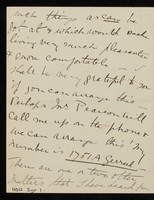 such things as can be
got at & which would make
living very much pleasanter
& more comfortable - I
shall be very grateful to you
if you can arrange this -
Perhaps Dr Pearson will
call me up on the phone &
we can arrange this. My
number is 1571A Gerrard.
There are one or two other
matters that I have heard from